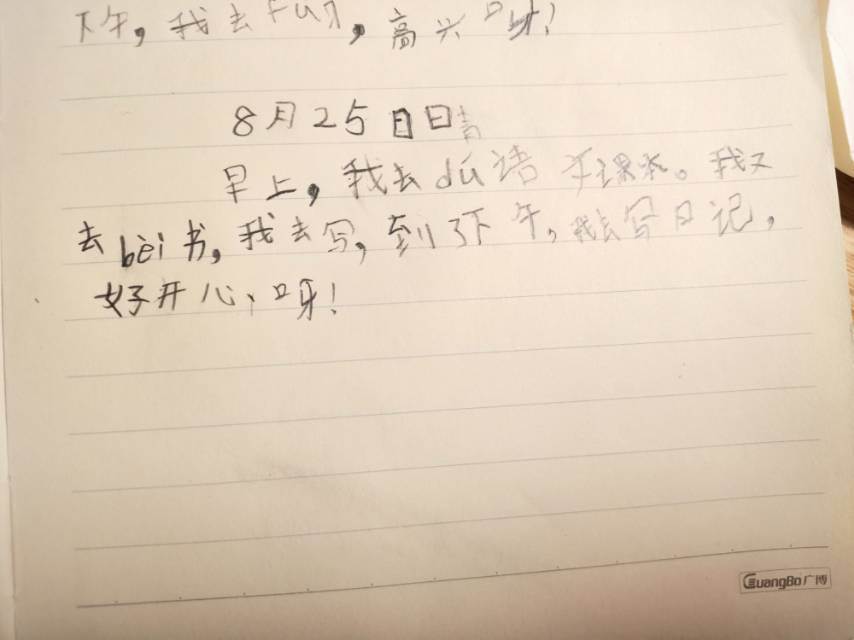 下午，我去，高兴呀！
8月25日日青
早上，我去dú语文课本。我又
去bèi书，我去写，到了下午，我去写日记，
好开心，呀！
GuangBo广博